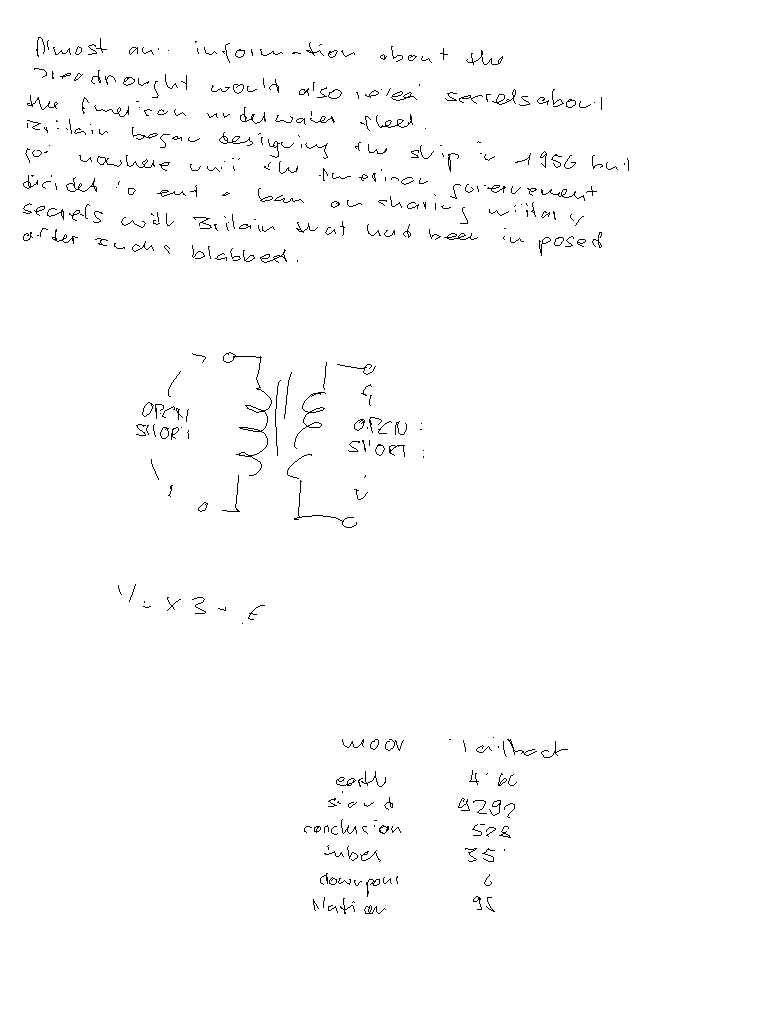 Almost any information about the
Dreadnought would also reveal secrets about
the American underwater fleet.
Britain began designing the ship in 1956 but
got nowhere until the American government
decided to end a ban on sharing military
secrets with Britain that had been imposed
after Fuchs blabbed.
OPEN
SHORT
OPEN
SHORT
moor tailback
earth
stand 9292
conclusion 508
tubes 35
downpour 6
Nation 95